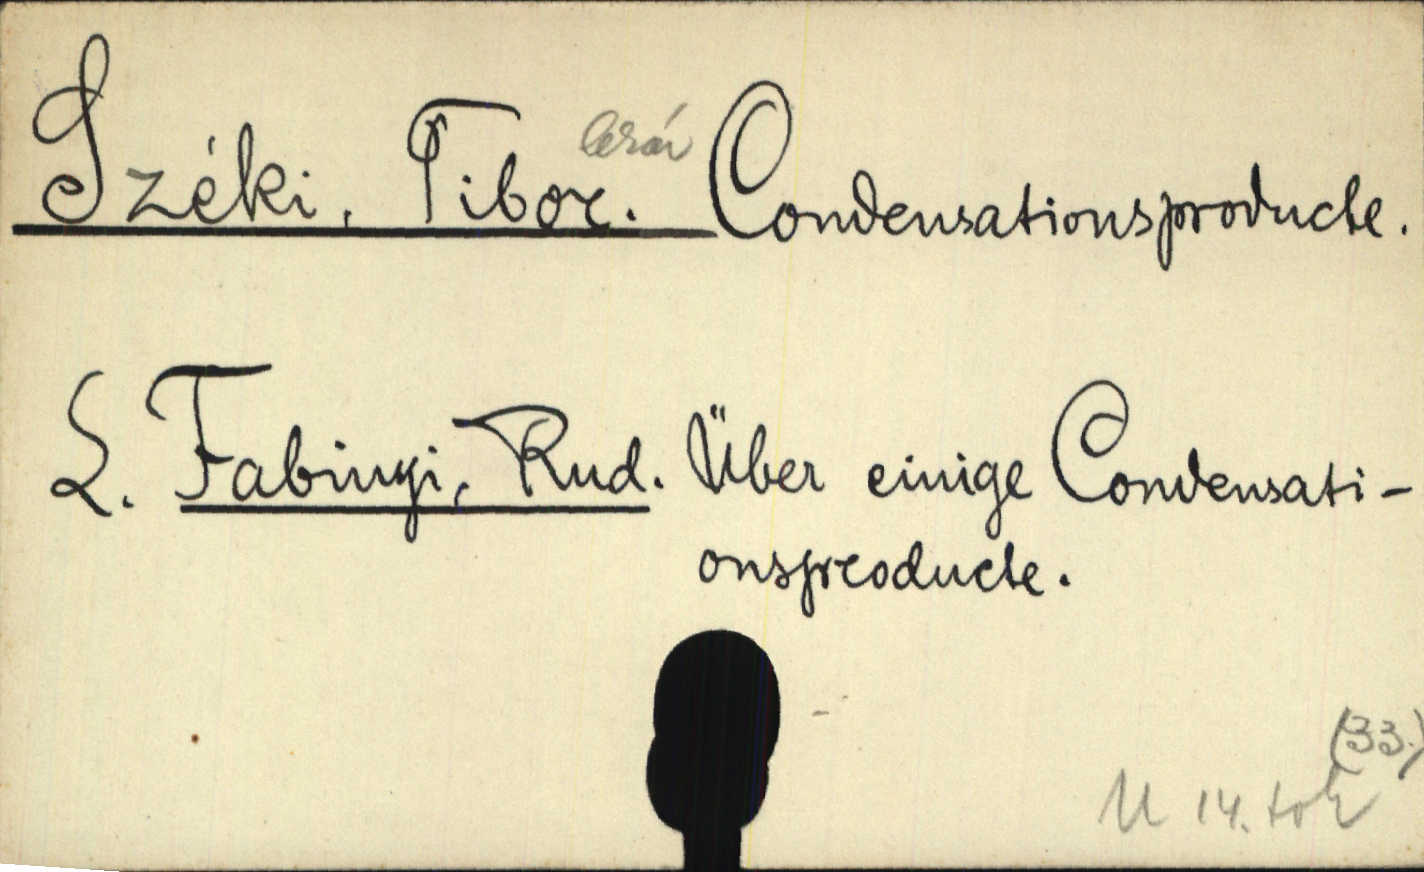 Széki, Tibor. Condensationsproducte.
L. Fabinyi, Rud. Über einige Condensati-
onsproducte.
(33.)
U 14. tok